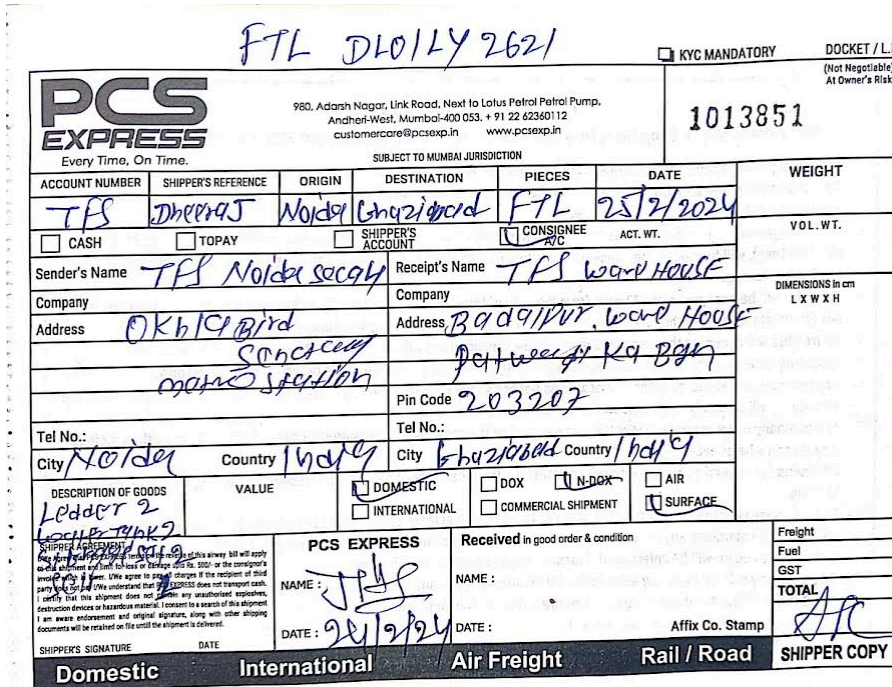 FTL DL01LY 2621
KYC MANDATORY
DOCKET / L.
(Not Negotiable)
At Owner's Risk
PCS
EXPRESS
Every Time, On Time.
980, Adarsh Nagar, Link Road, Next to Lotus Petrol Petrol Pump,
Andheri-West, Mumbai-400 053. + 91 22 62360112
customercare@pcsexp.in www.pcsexp.in
SUBJECT TO MUMBAI JURISDICTION
1013851
ACCOUNT NUMBER SHIPPER'S REFERENCE ORIGIN DESTINATION PIECES DATE WEIGHT
TFS Dheeraj Noida Ghaziabad FTL 25/2/2024
CASH TOPAY SHIPPER'S ACCOUNT CONSIGNEE A/C ACT. WT. VOL. WT.
Sender's Name TFS Noida
Receipt's Name TFS Ward House
DIMENSIONS in cm
L X W X H
Company
Company
Address Okhla Bird
station
Address Badalpur. Ward House
Ka
Pin Code 203207
Tel No.:
Tel No.:
City Noida Country India
City Ghaziabad Country India
DESCRIPTION OF GOODS VALUE
Ledder 2
DOMESTIC DOX N-DOX AIR
INTERNATIONAL COMMERCIAL SHIPMENT SURFACE
SHIPPER AGREEMENT
of this airway bill will apply
to this shipment and limit for loss or damage upto Rs. 500/- or the consignor's
invoice which is lower. I/We agree to pay all charges if the recipient of third
party does not pay I/We understand that PCS EXPRESS does not transport cash.
I certify that this shipment does not contain any unauthorised explosives,
destruction devices or hazardous material. I consent to a search of this shipment
I am aware endorsement and original signature, along with other shipping
documents will be retained on file until the shipment is delivered.
SHIPPER'S SIGNATURE DATE
PCS EXPRESS
NAME :
DATE : 24/2/24
Received in good order & condition
NAME :
DATE : Affix Co. Stamp
Freight
Fuel
GST
TOTAL
Domestic International Air Freight Rail / Road
SHIPPER COPY